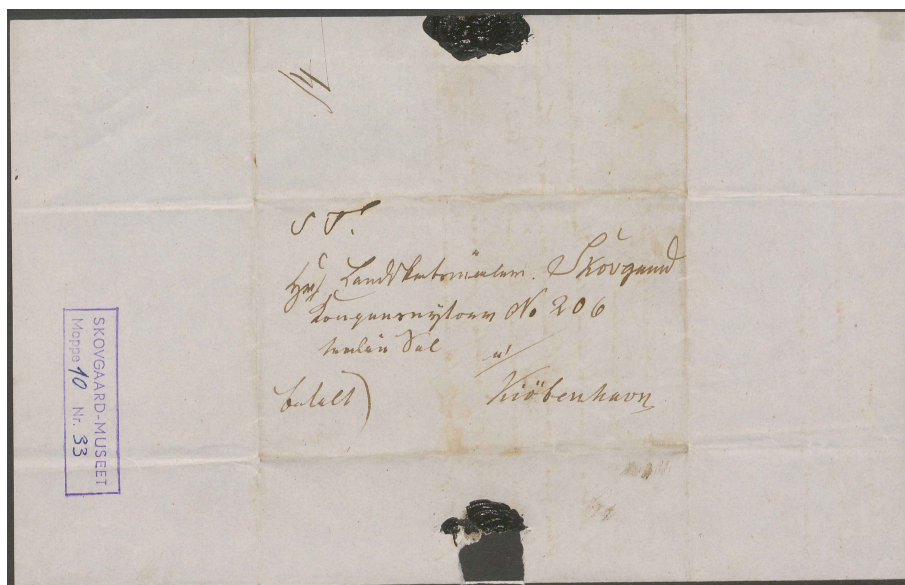 S T.
Hr. Landskabsmaler Skovgaard
Kongensnytorv No 206
anden Sal
i
Kiöbenhavn
betalt)
SKOVGAARD-MUSEET
Mappe 10 Nr. 33